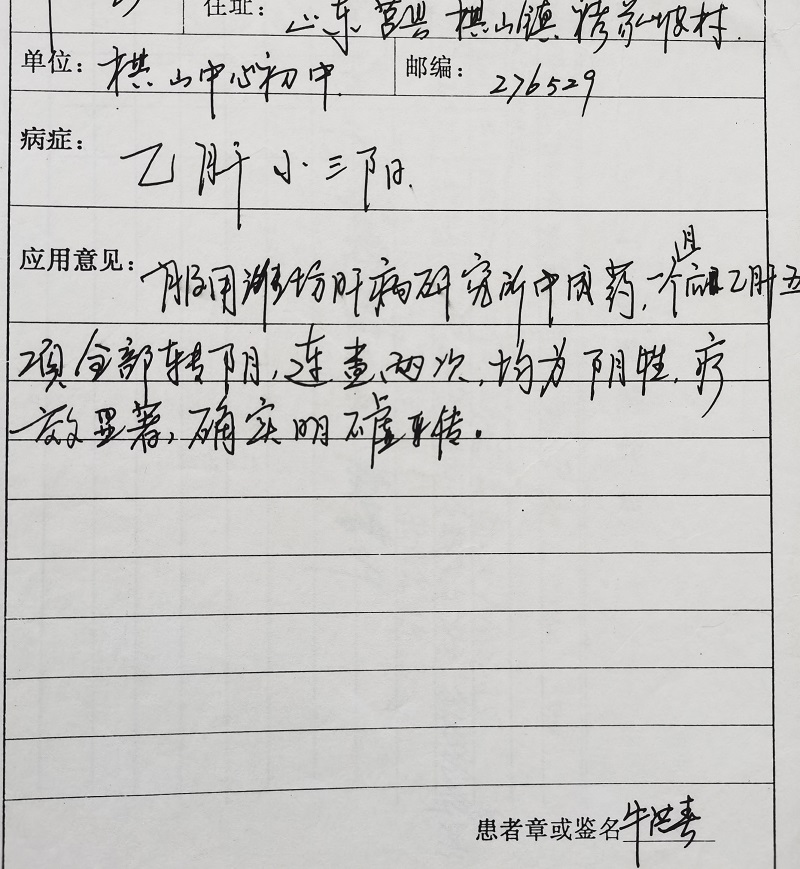 住址: 山东莒县棋山镇 坡村.
单位: 棋山中心初中. 邮编: 276529
病症: 乙肝小三阳.
应用意见: 服用潍坊肝病研究所中成药,一个月 乙肝五
项全部转阴,连查两次,均为阴性,疗
效显著,确实明不虚传。
患者章或鉴名 牛洪春